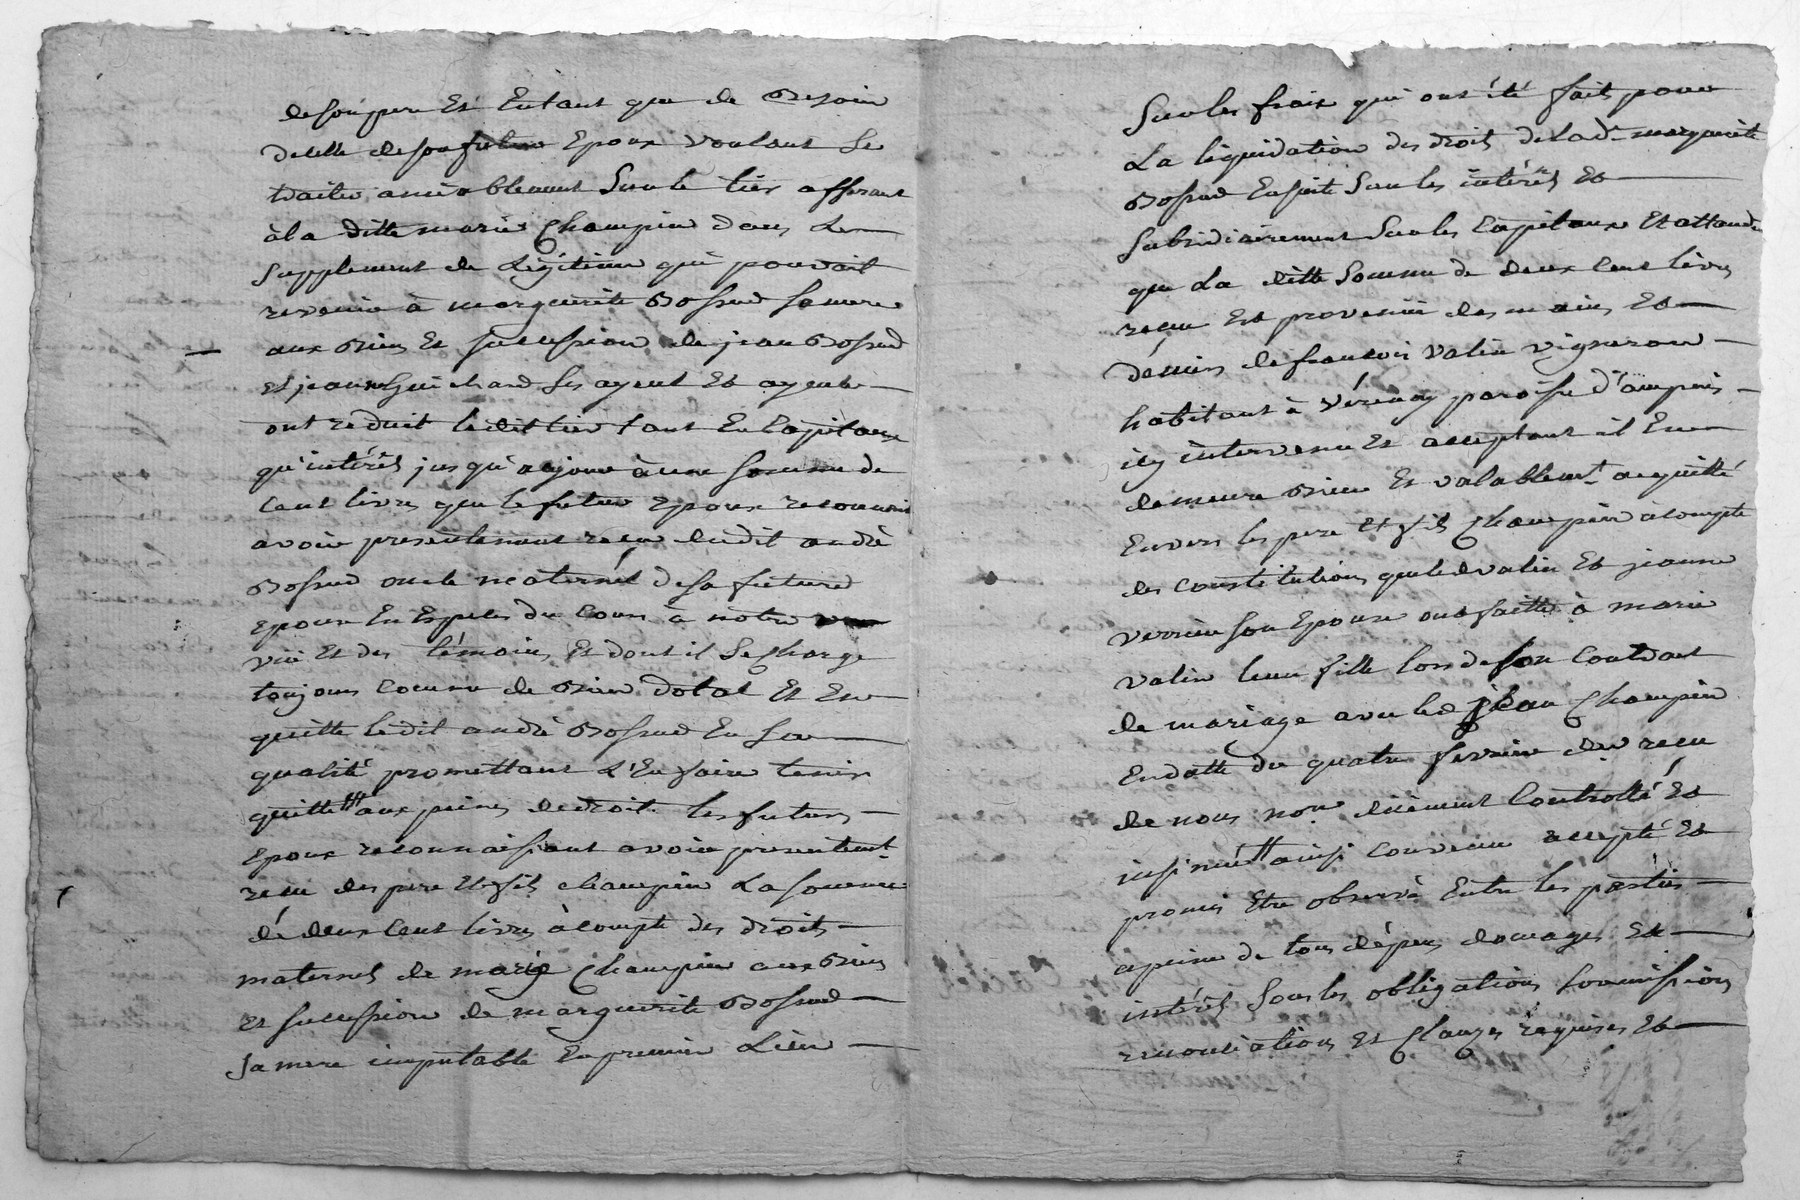 de son pere Et Entant que de Besoin
de celle de son futur Epoux voulant se
traiter amiablement Sur le tier afferant
à la ditte marie Champin dans Le
supplement de Légitime qui pouvoit
revenir à marguerite Bossud sa mere
aux Biens Et succession de jean Bossud
et jeanne Guichard ses ayeul Et ayeule
ont reduit ledit tier tant En Capitaux
qu'intérêt jusqu'aujour à une somme de
cent livres que le futur epoux reconnoit
avoir presentement reçu dudit andré
Bossud oncle maternel de sa future
epouse En Especes du cours à notre
vüe Et des témoins, Et dont il se charge
toujours comme de Bien dotal Et En
quitte ledit andré Bossud En son
qualité promettant L'En faire tenir
quitte aux peines de droit. les futurs
Epoux reconnaissant avoir presentemt
recu des pere Et fils champin La somme
de deux cent livres àcompte des droits
maternels de marie Champin aux Biens
Et succession de marguerite Bossud
sa mere imputable En premier Lieu
Sur les frais qui ont été fait pour
La liquidation des droit de la de marguerite
Bossud Ensuite Sur les intérêts Et
subsidiairement Sur les Capitaux Et attendu
que La ditte Somme de deux Cent livres
reçue Est provenüe des mains Et
déniers de francois valin vigneron
habitant à vérenay paroisse d'ampuis
icy intervenu Et acceptant il En
demeure Bien Et valablemt acquitté
Envers les pere Et fils Champin àcompte
des constitutions que led valin Et jeanne
verrier son Epouse ont faitte à marie
valin leur fille lors de son Contract
de mariage avec led jean Champin
En datte du quatre fevrier der recu
de nous nore düement Controllé Et
insinué ainsi convenu accepté Et
promis Etre observé Entre les parties
apeine de tous dépens domages Et
intérêt Sous les obligations soumissions
renonciations Et Clauzes requises Et